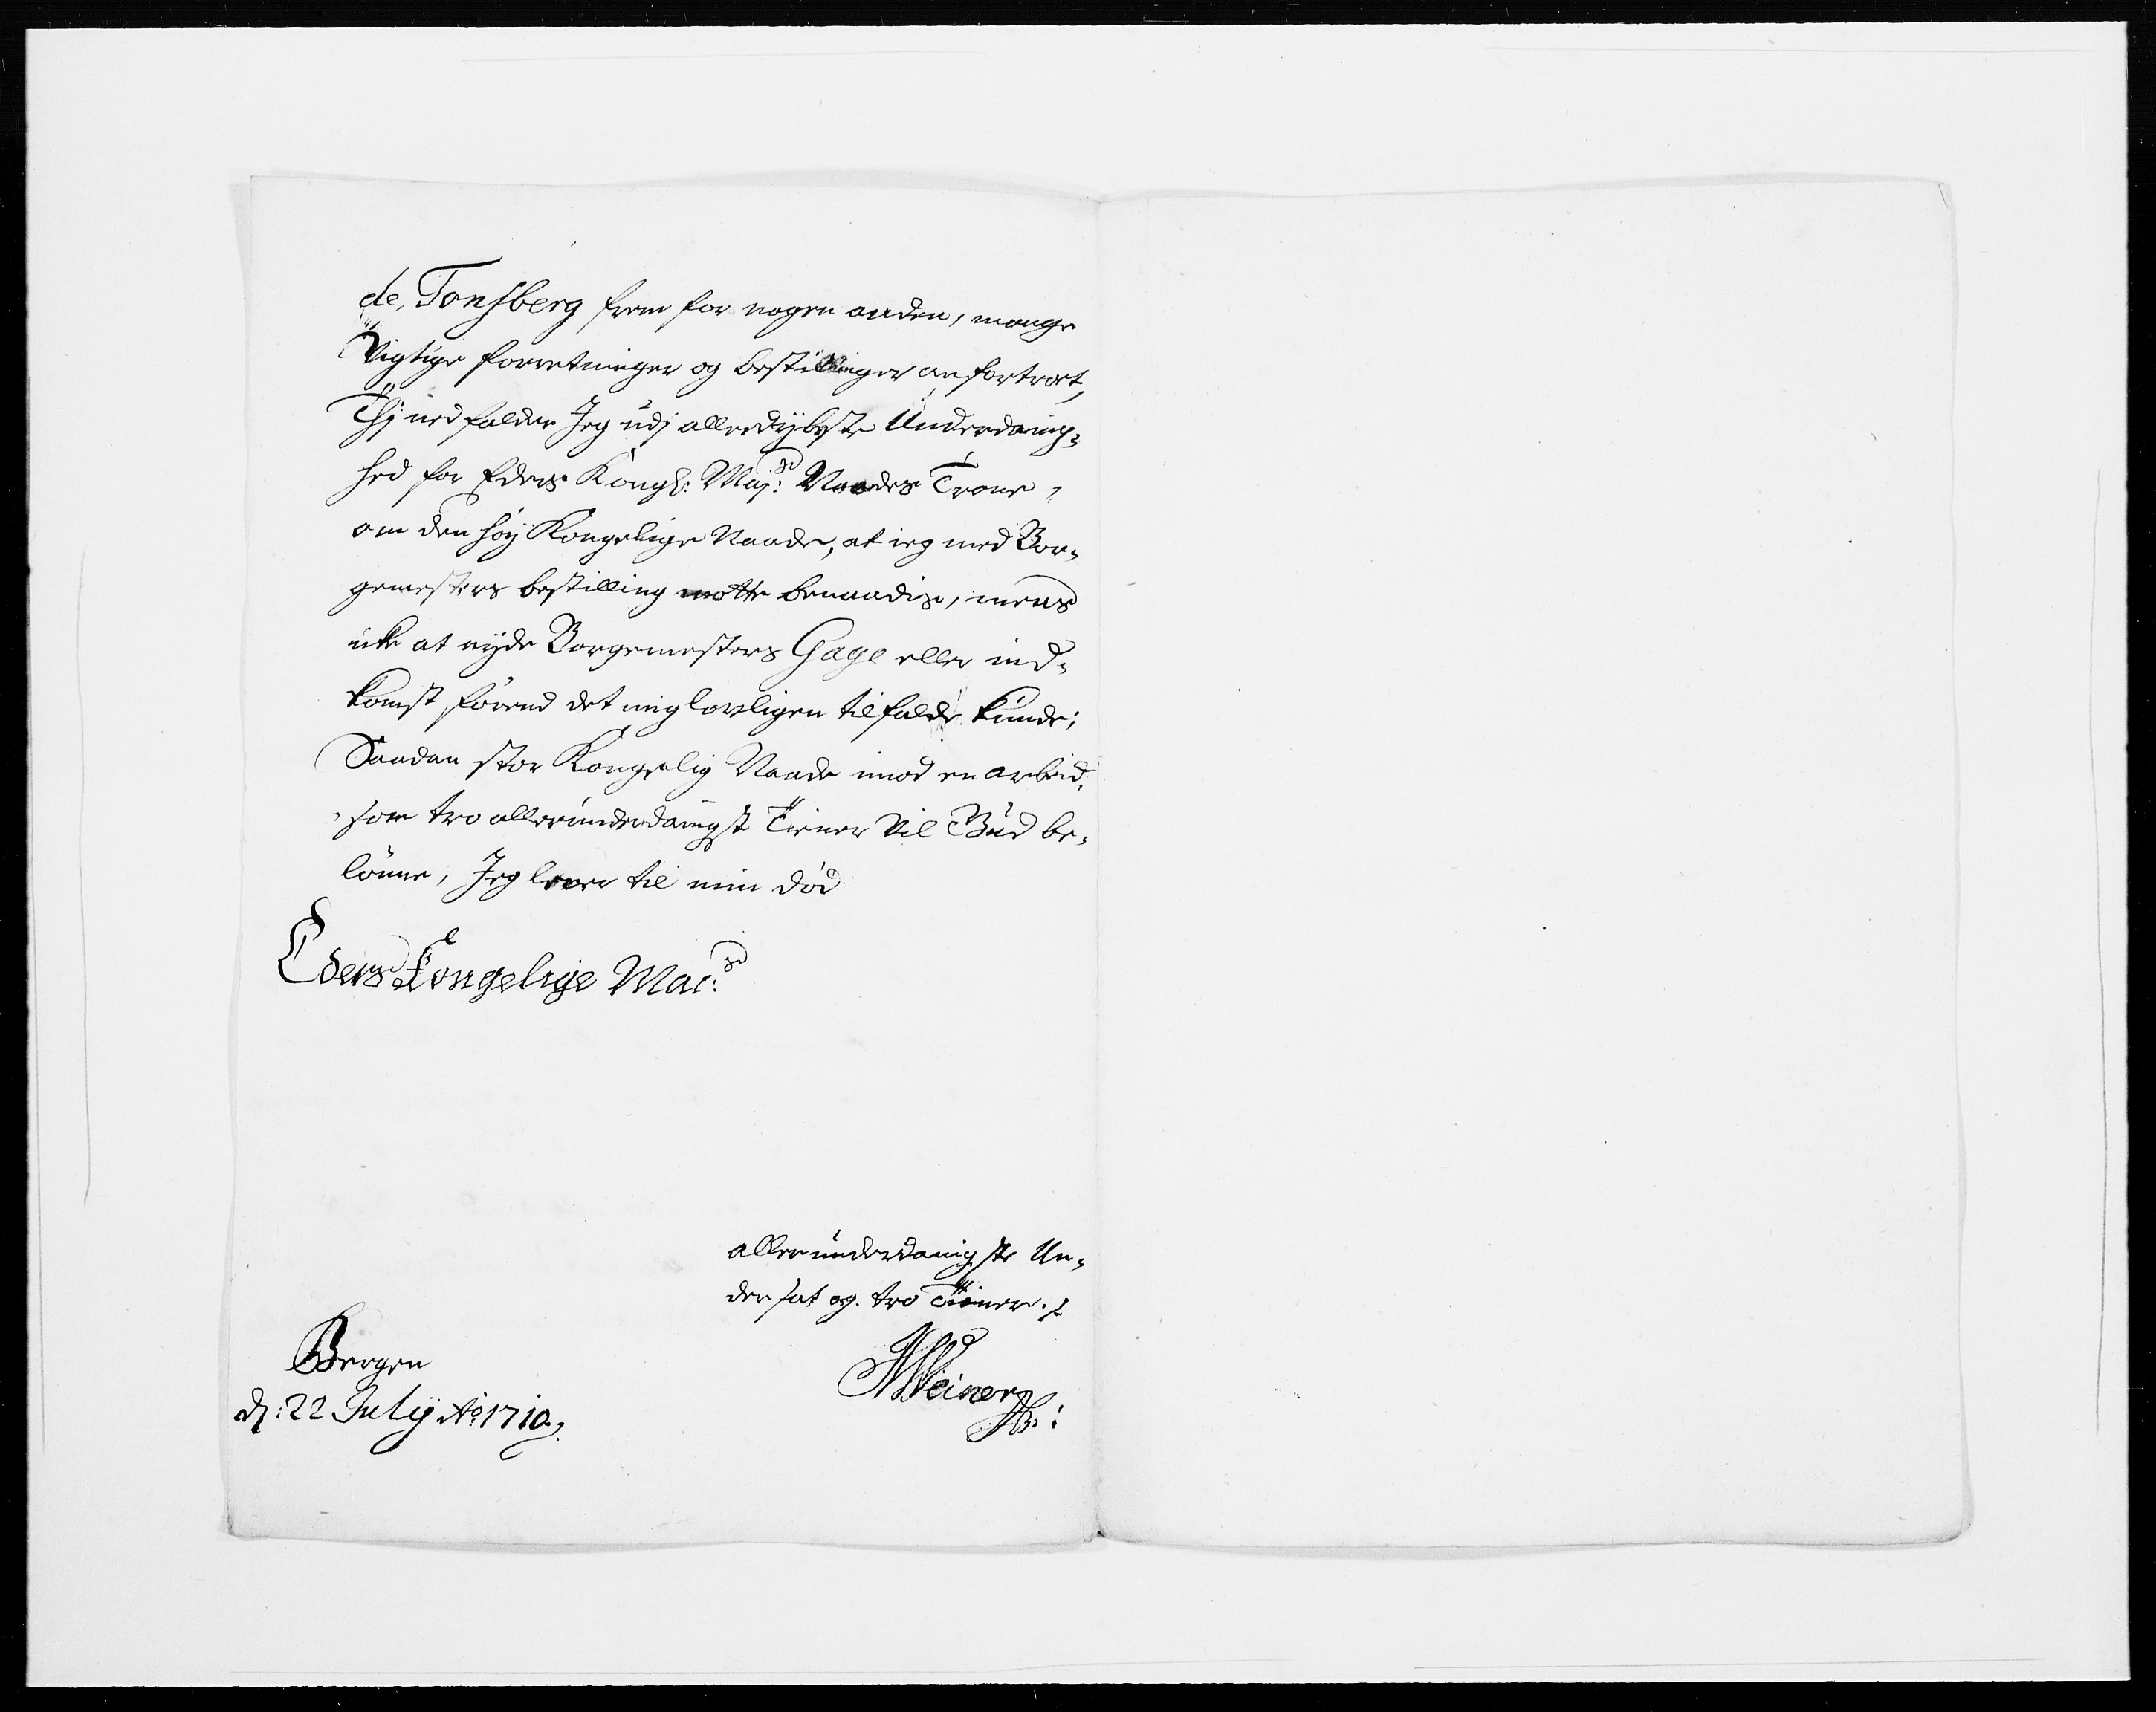 de Tonsberg frem for nogen anden, mange
Vigtige forretninger og bestillinger anfortroet,
Thj nedfalder Jeg udj allerdybeste Underdanig-
hed for Eders Kongl: Maj:ts Naades Trone,
om den høy Kongelige Naade, at ieg med Bor-
gemesters bestilling motte benaadis, mens
icke at nyde Borgemesters Gage eller ind-
komst, førend det mig lovligen tilfalde kunde;
Saadan stor Kongelig Naade imod en arbeid-
som tro allerunderdanigst Tiener Vil Gud be-
lønne, Jeg lever til min død
Eders Kongelige Mai:ts
allerunderdanigste Un-
dersat og tro Tiener
Bergen
d: 22 July Ao 1710